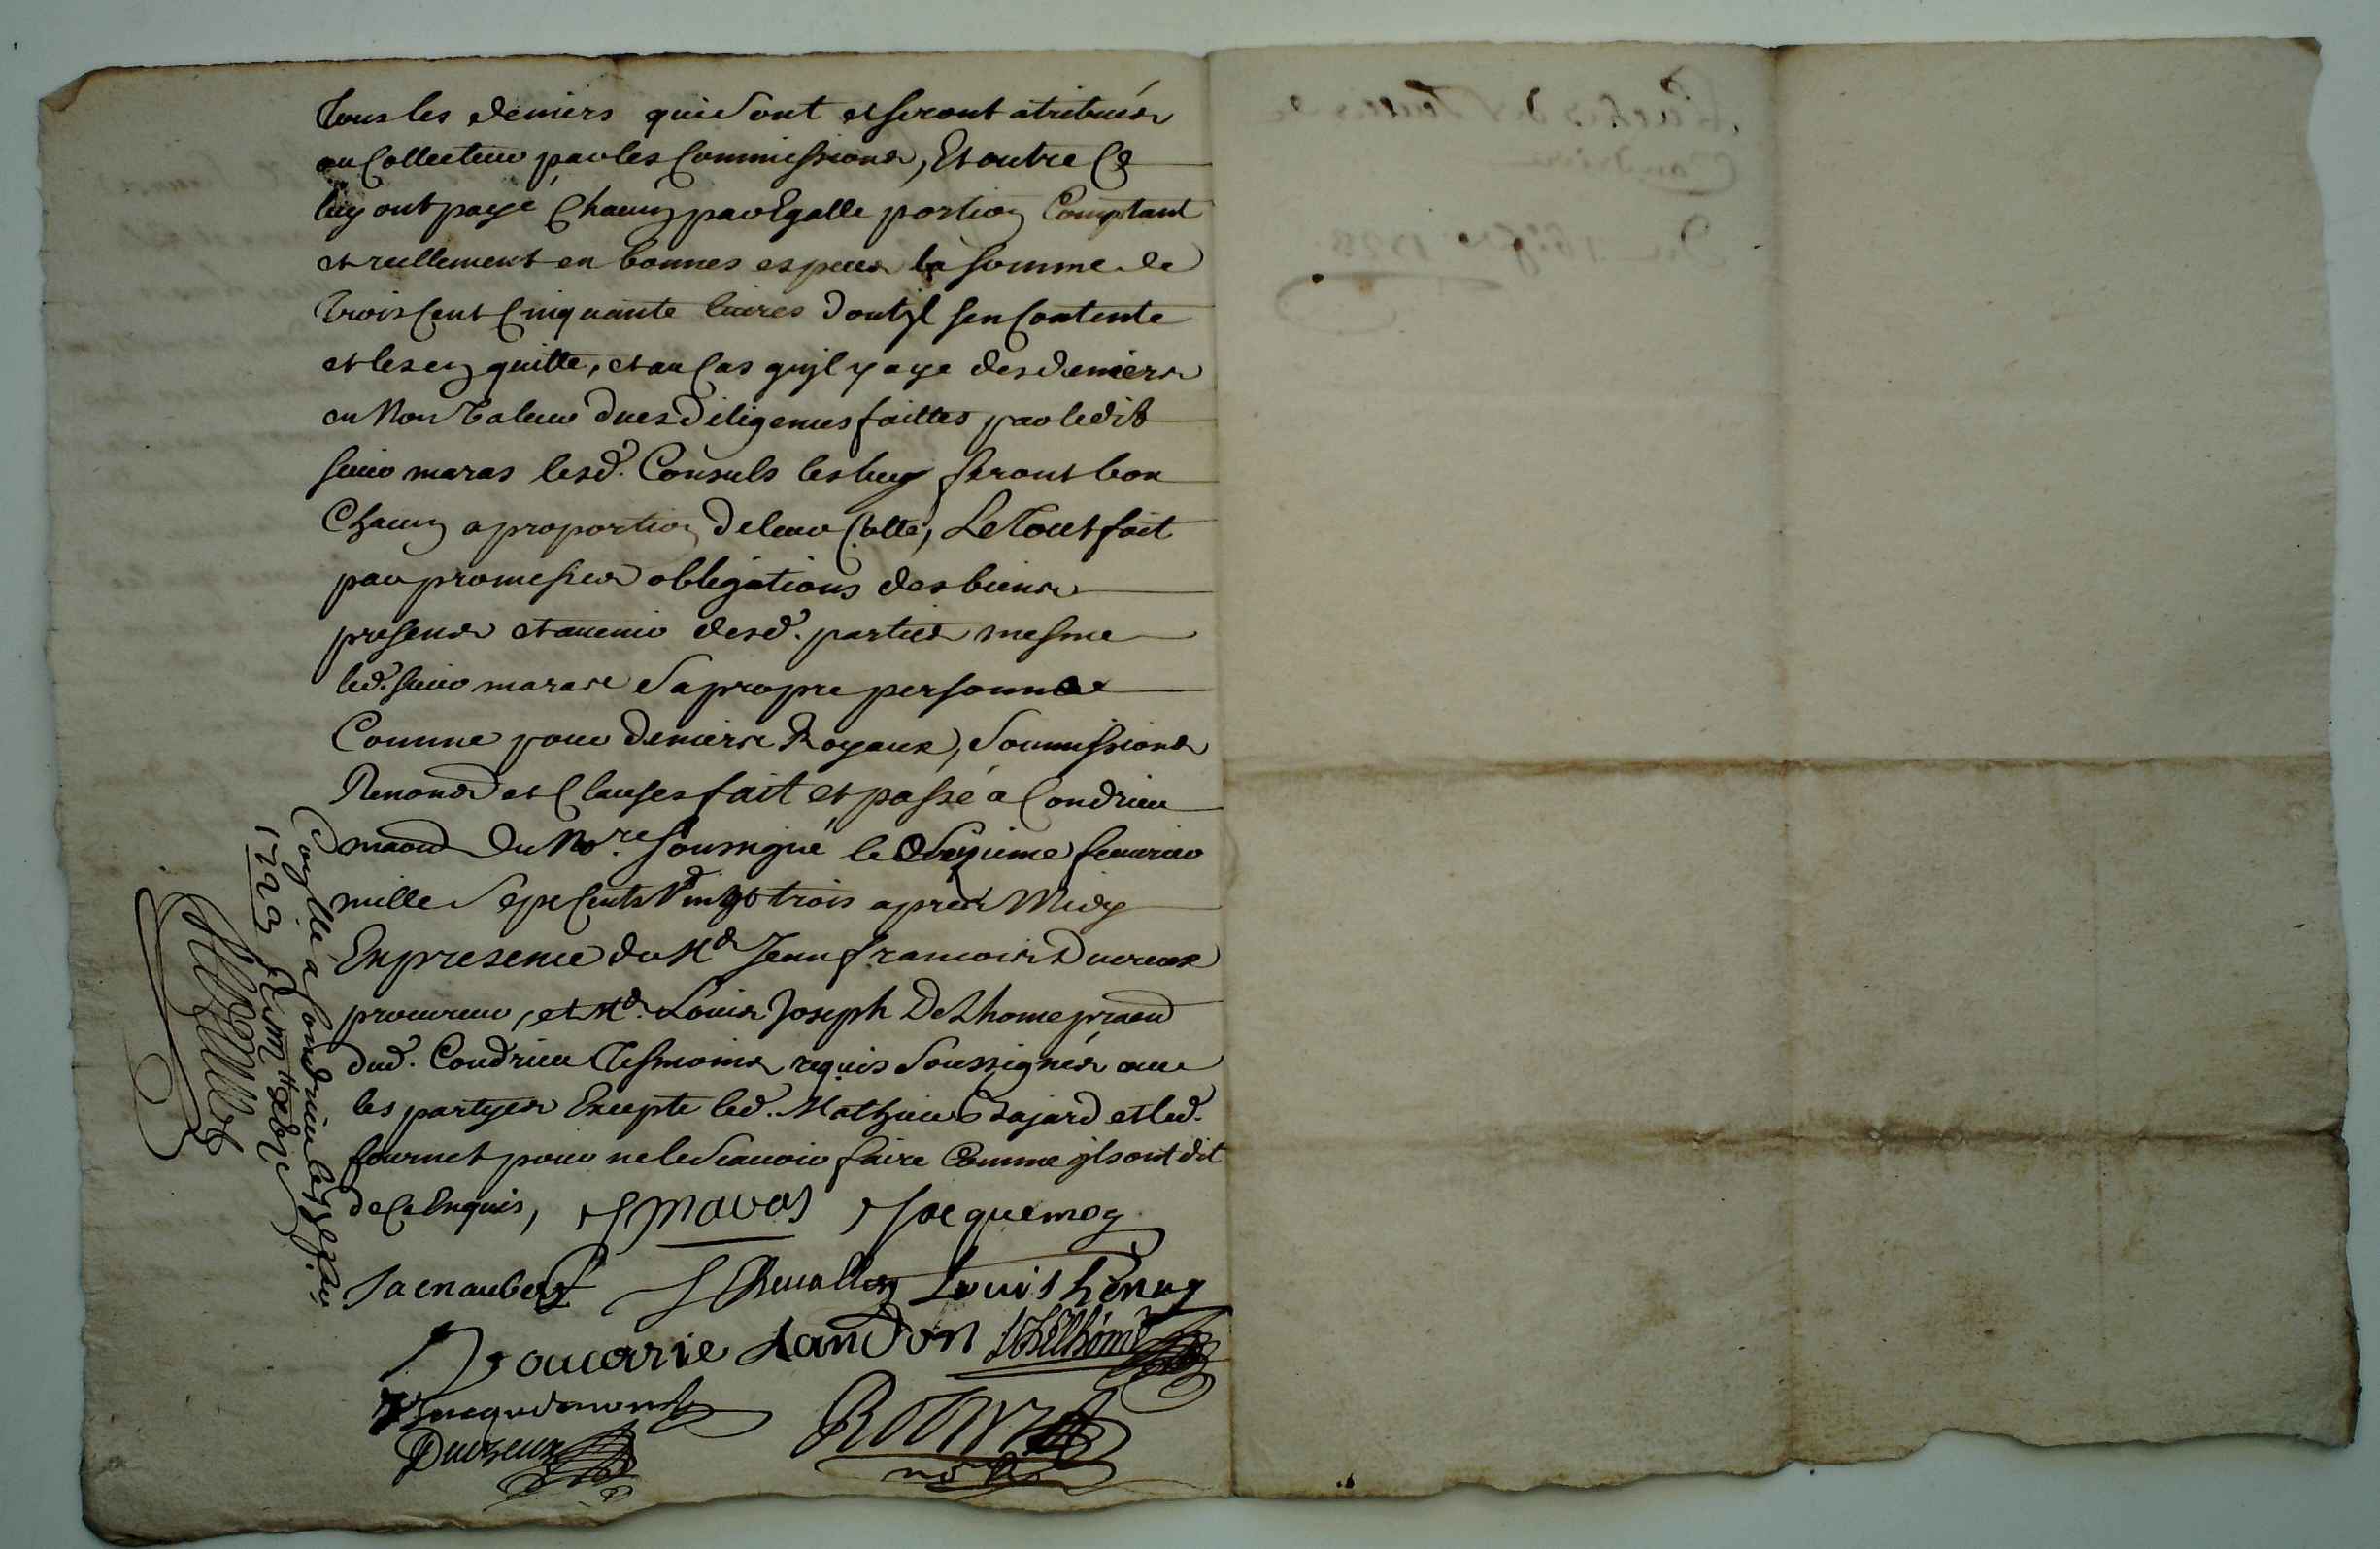 Tous les deniers qui sont et seront atribués
au Collecteur par les Commissions, Et outre Ce
luy ont payé Chacun par Egalle portion Comptant
et reellement en bonnes especes la somme de
trois Cent Cinquante livres dont jl sen Contente
et les en quitte, et au Cas qujl y aye des deniers
en Non Valeur dues diligences faittes par ledit
sieur maras lesd. Consuls les luy feront bon
Chacun a proportion de leur Cotte, Le Tout fait
par promesses obligations des biens
presens et avenir desd. parties mesme
led. sieur maras sa propre personne
Comme pour deniers Royaux, Soumissions
Renonds et Clauses fait et passé a Condrieu
maond du No.re soussigné le seizieme feuurier
mille Sept Cents Vingt trois apres Midy
En presence de Me Jean francois Duvreux
procureur, et Me. Louis Joseph Delhome praend
dud. Condrieu Tesmoins requis Soussignés auec
les partyes Excepte led. Mathieu Bajard et led.
fournet pour ne le Scauoir faire Comme jls ont dit
de Ce Enquis, maras Jacquemoy
Louis henry
Landon Delhome
Jacquemont
Duvreux
Conlle a Condrieu le
1723